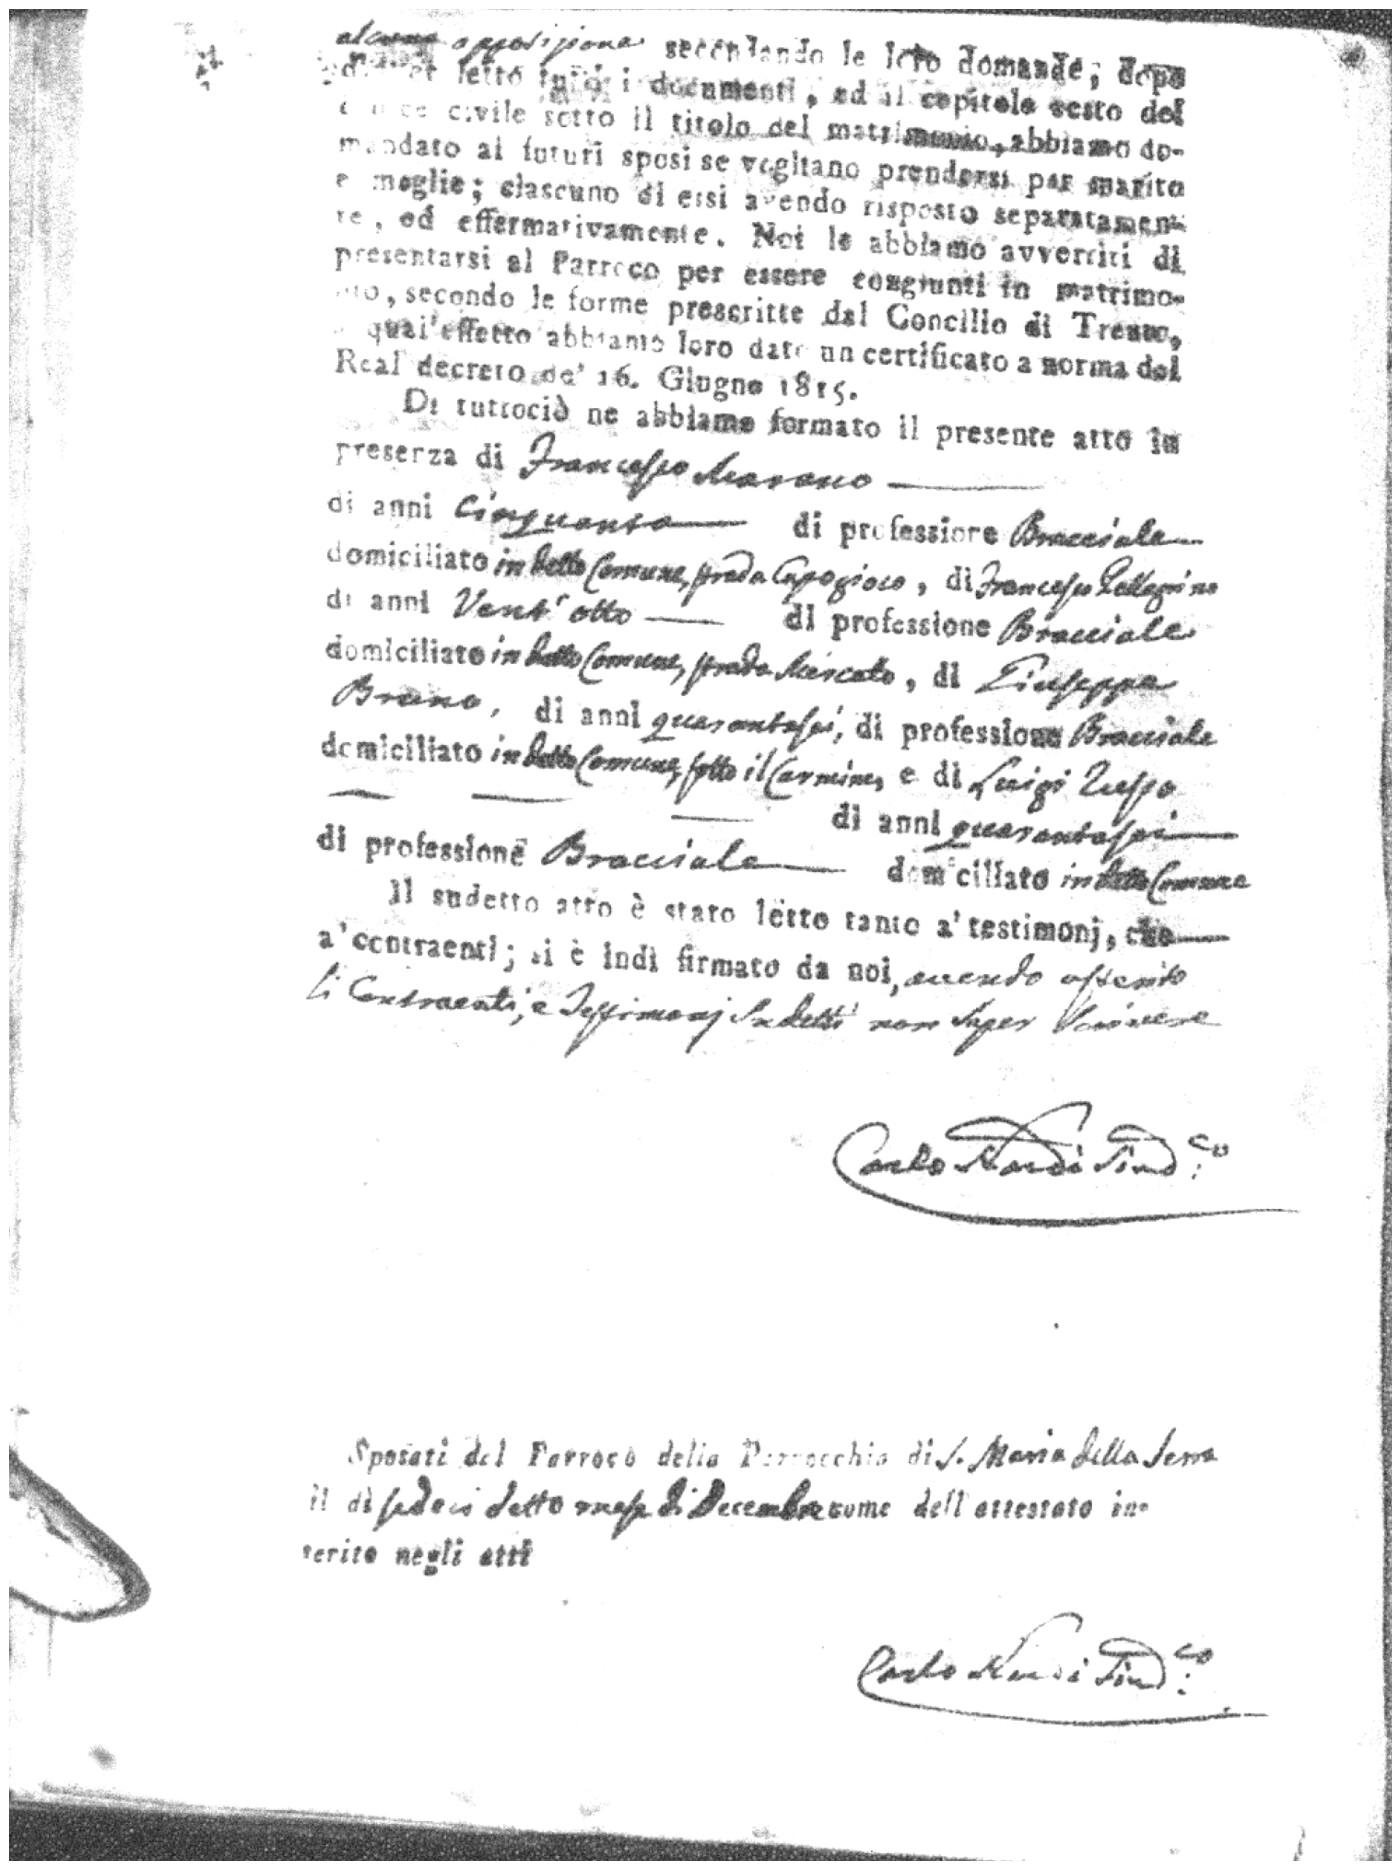 alcuna opposizione secondando le loro domande; dopo
di aver letto tutti i documenti, ed il capitolo sesto del
codice civile sotto il titolo del matrimonio, abbiamo do-
mandato ai futuri sposi se vogliano prendersi per marito
e moglie; ciascuno di essi avendo risposto separatamen-
te, ed effermativamente. Noi le abbiamo avvertiti di
presentarsi al Parroco per essere congiunti in matrimo-
nio, secondo le forme prescritte dal Concilio di Trento,
qual'effetto abbiamo loro dato un certificato a norma del
Real decreto de' 16. Giugno 1815.
Di tuttociò ne abbiamo formato il presente atto in
presenza di Francesco Marano
di anni Cinquanta di professione Bracciale
domiciliato in detto Comune, strada Capogioco, di Francesco Pellegrino
di anni Vent'otto di professione Bracciale
domiciliato in detto Comune, strada Mercato, di Giuseppe
Bruno, di anni quarantasei, di professione Bracciale
domiciliato in detto Comune, sotto il Carmine, e di Luigi
di anni quarantasei
di professione Bracciale domiciliato in detto Comune
Il sudetto atto è stato letto tanto a' testimonj, che
a' contraenti; si è indi firmato da noi, avendo asserito
li Contraenti, e Testimonj sudetti non saper scrivere
Carlo Nardi Sind.co
Sposati dal Parroco della Parrocchia di S. Maria della Serra
il dì sedeci detto mese di Decembre come dell'attestato in-
serito negli atti
Carlo Nardi Sind.co